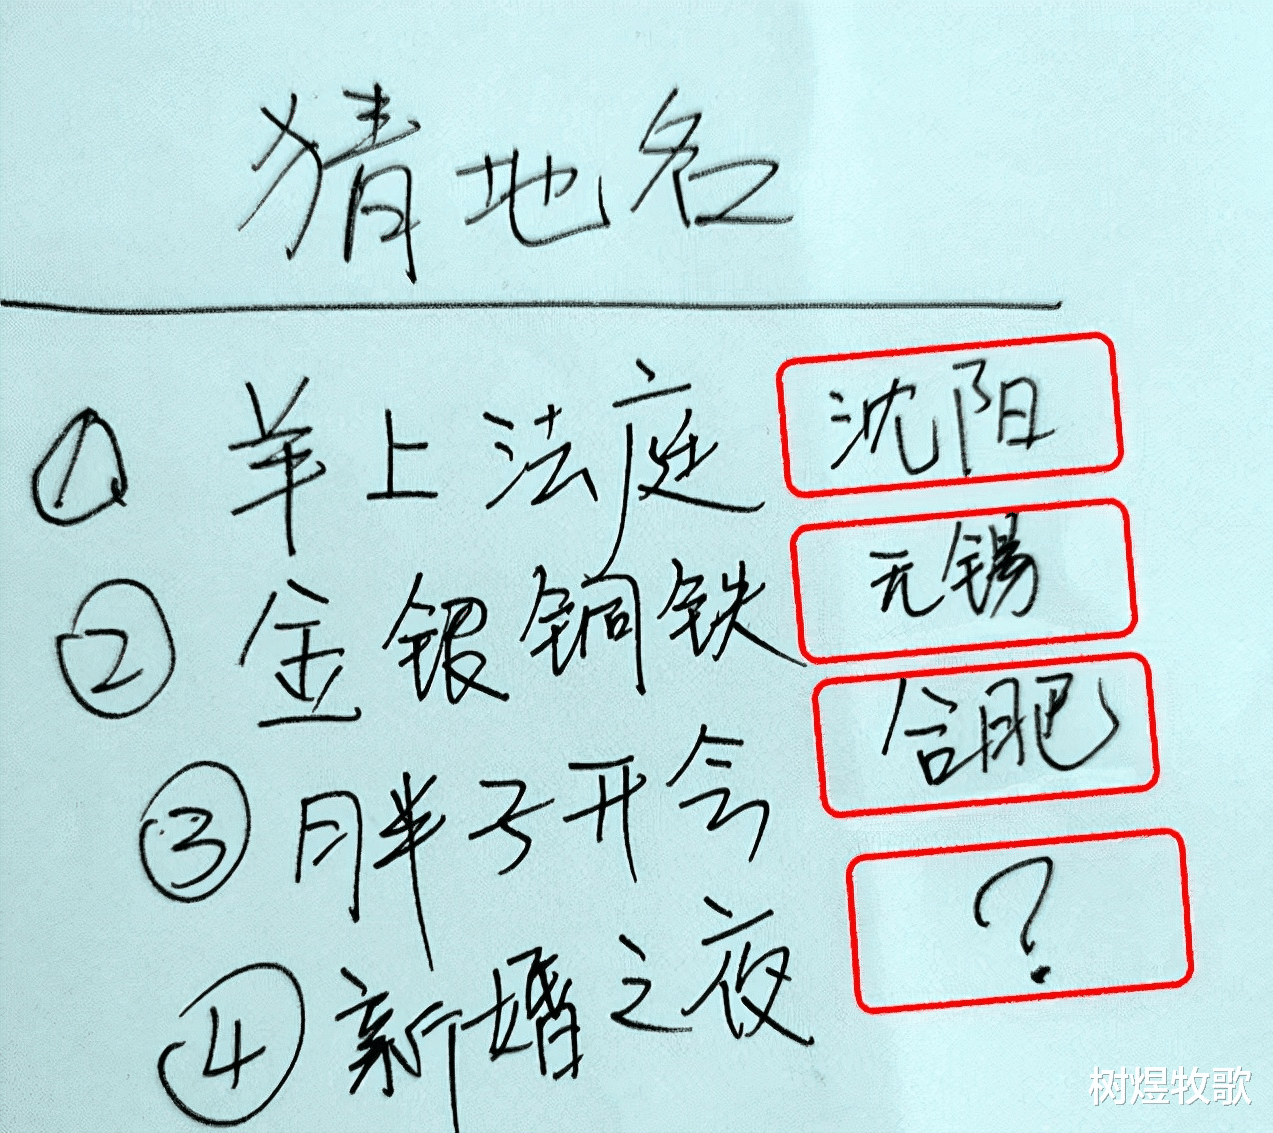 猜地名
① 羊上法庭 沈阳
② 金银铜铁 无锡
③ 胖子开会 合肥
④ 新婚之夜 ?
树煜牧歌